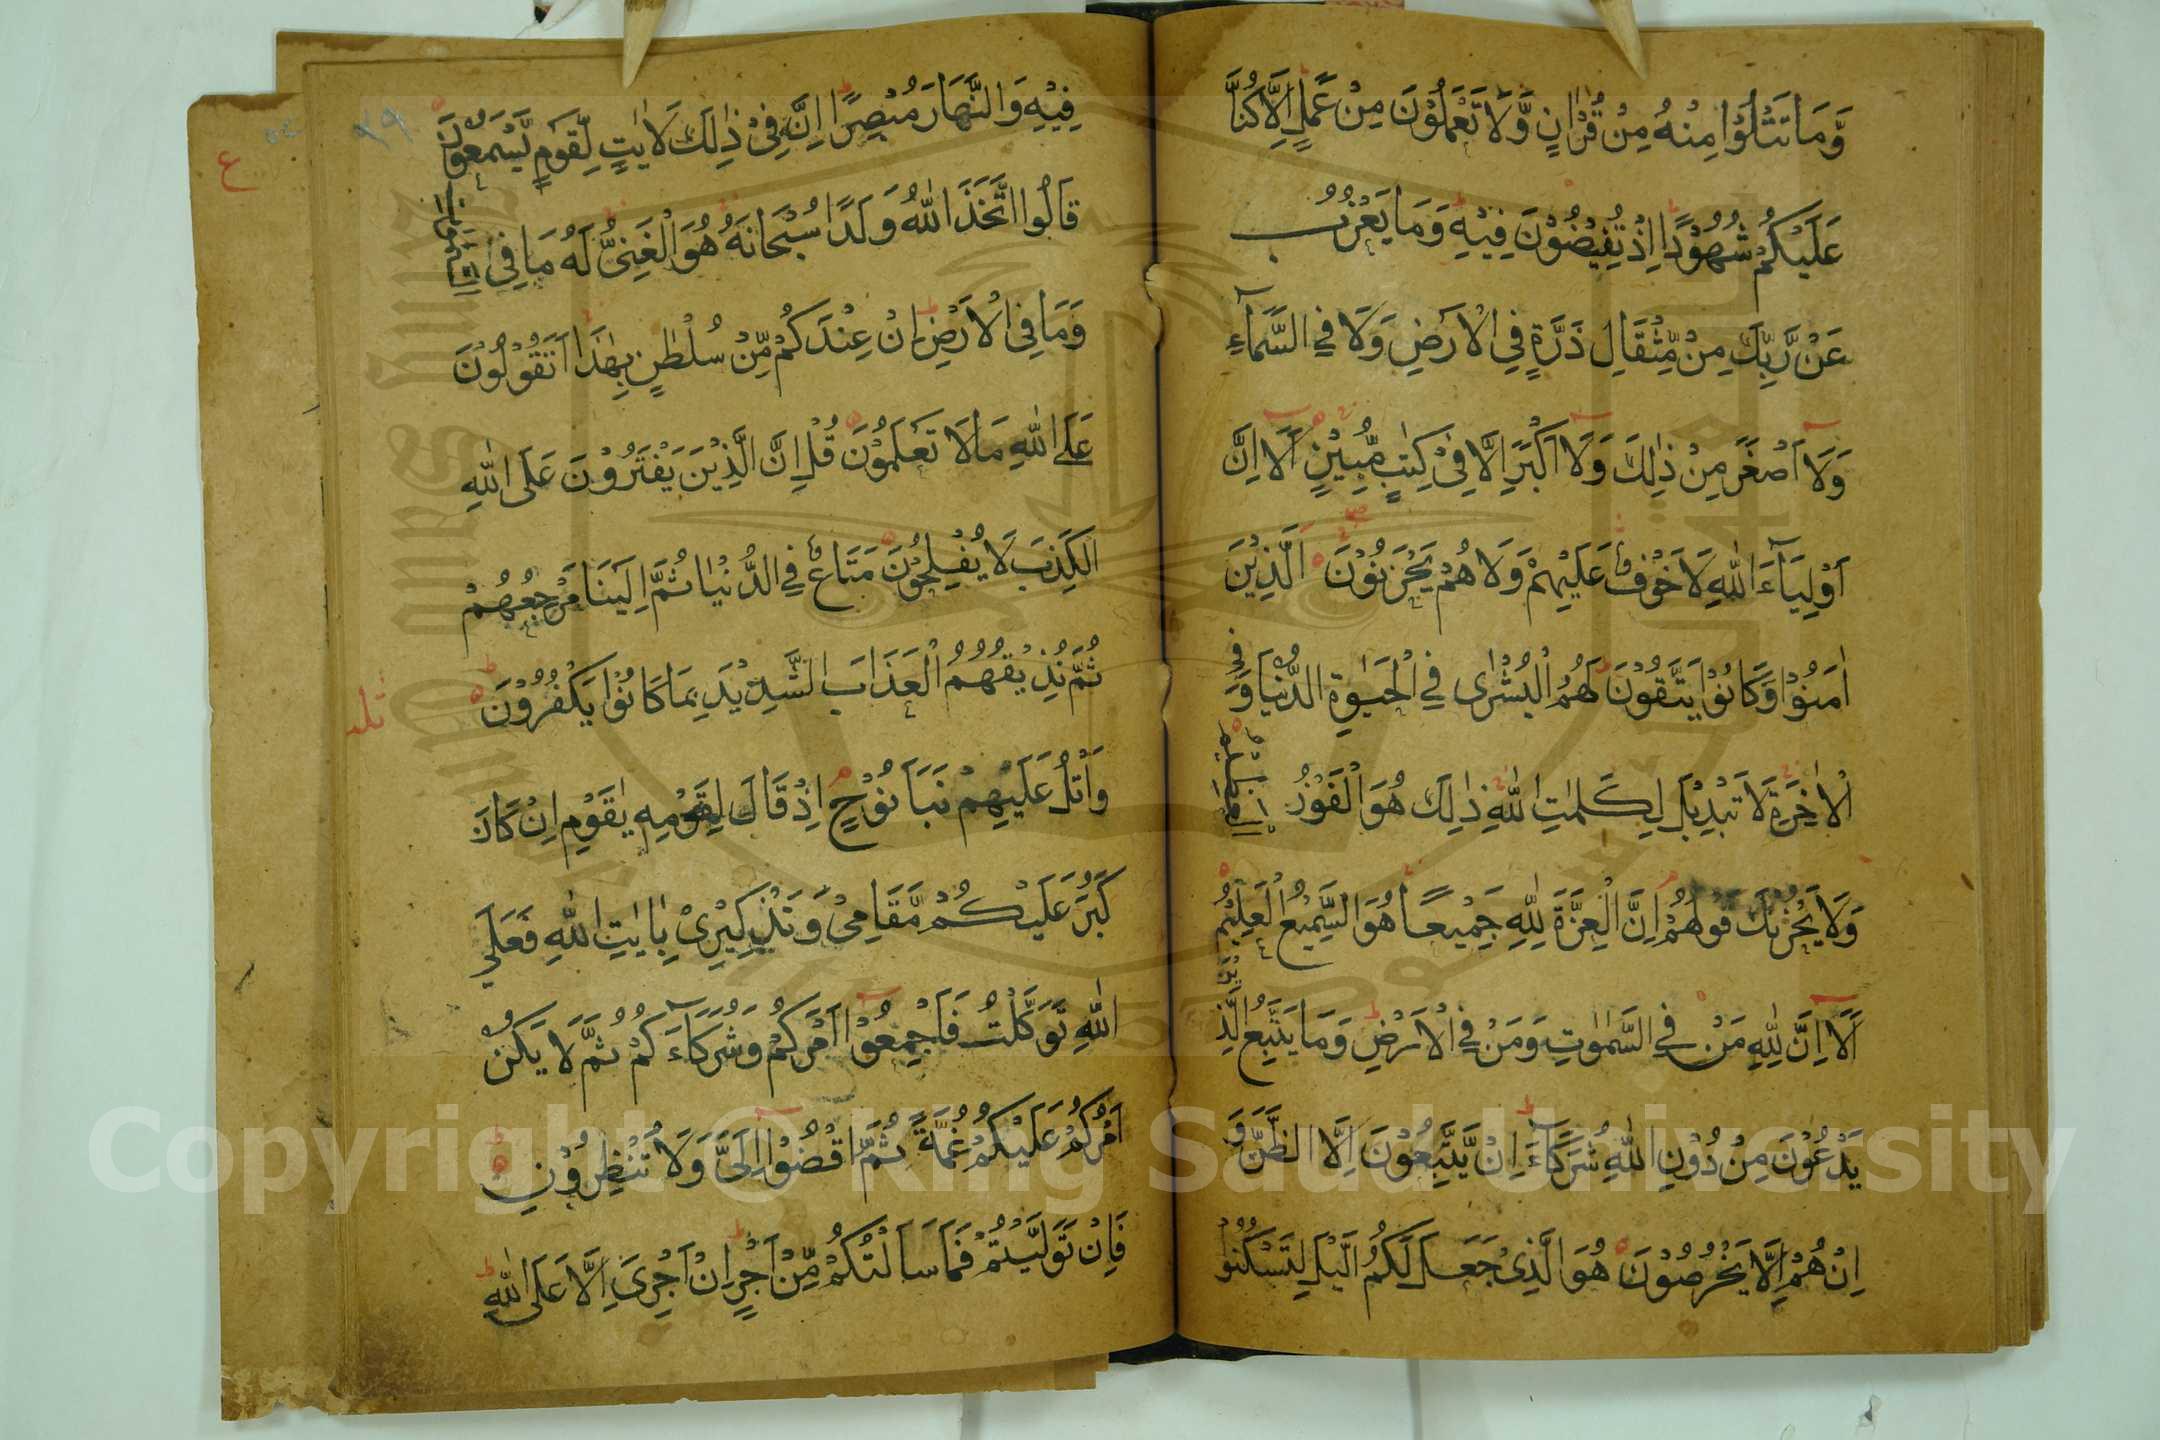 وَّمَا تَتْلُوْا مِنْهُ مِنْ قُرْاٰنٍ وَّلَا تَعْمَلُوْنَ مِنْ عَمَلٍ اِلَّا كُنَّا
عَلَيْكُمْ شُهُوْدًا اِذْ تُفِيْضُوْنَ فِيْهِ وَمَا يَعْزُبُ
عَنْ رَّبِّكَ مِنْ مِّثْقَالِ ذَرَّةٍ فِي الْاَرْضِ وَلَا فِي السَّمَآءِ
وَلَا اَصْغَرَ مِنْ ذٰلِكَ وَلَا اَكْبَرَ اِلَّا فِيْ كِتٰبٍ مُّبِيْنٍ اَلَا اِنَّ
اَوْلِيَآءَ اللّٰهِ لَا خَوْفٌ عَلَيْهِمْ وَلَا هُمْ يَحْزَنُوْنَ الَّذِيْنَ
اٰمَنُوْا وَكَانُوْا يَتَّقُوْنَ لَهُمُ الْبُشْرٰى فِي الْحَيٰوةِ الدُّنْيَا وَفِي
الْاٰخِرَةِ لَا تَبْدِيْلَ لِكَلِمٰتِ اللّٰهِ ذٰلِكَ هُوَ الْفَوْزُ الْعَظِيْمُ
وَلَا يَحْزُنْكَ قَوْلُهُمْ اِنَّ الْعِزَّةَ لِلّٰهِ جَمِيْعًا هُوَ السَّمِيْعُ الْعَلِيْمُ
اَلَا اِنَّ لِلّٰهِ مَنْ فِي السَّمٰوٰتِ وَمَنْ فِي الْاَرْضِ وَمَا يَتَّبِعُ الَّذِيْنَ
يَدْعُوْنَ مِنْ دُوْنِ اللّٰهِ شُرَكَآءَ اِنْ يَّتَّبِعُوْنَ اِلَّا الظَّنَّ وَ
اِنْ هُمْ اِلَّا يَخْرُصُوْنَ هُوَ الَّذِيْ جَعَلَ لَكُمُ الَّيْلَ لِتَسْكُنُوْا
فِيْهِ وَالنَّهَارَ مُبْصِرًا اِنَّ فِيْ ذٰلِكَ لَاٰيٰتٍ لِّقَوْمٍ يَّسْمَعُوْنَ
قَالُوا اتَّخَذَ اللّٰهُ وَلَدًا سُبْحَانَهُ هُوَ الْغَنِيُّ لَهُ مَا فِي السَّمٰوٰتِ
وَمَا فِي الْاَرْضِ اِنْ عِنْدَكُمْ مِّنْ سُلْطٰنٍ بِهٰذَا اَتَقُوْلُوْنَ
عَلَى اللّٰهِ مَا لَا تَعْلَمُوْنَ قُلْ اِنَّ الَّذِيْنَ يَفْتَرُوْنَ عَلَى اللّٰهِ
الْكَذِبَ لَا يُفْلِحُوْنَ مَتَاعٌ فِي الدُّنْيَا ثُمَّ اِلَيْنَا مَرْجِعُهُمْ
ثُمَّ نُذِيْقُهُمُ الْعَذَابَ الشَّدِيْدَ بِمَا كَانُوْا يَكْفُرُوْنَ
وَاتْلُ عَلَيْهِمْ نَبَاَ نُوْحٍ اِذْ قَالَ لِقَوْمِهٖ يٰقَوْمِ اِنْ كَانَ
كَبُرَ عَلَيْكُمْ مَّقَامِيْ وَتَذْكِيْرِيْ بِاٰيٰتِ اللّٰهِ فَعَلَى
اللّٰهِ تَوَكَّلْتُ فَاَجْمِعُوْا اَمْرَكُمْ وَشُرَكَآءَكُمْ ثُمَّ لَا يَكُنْ
اَمْرُكُمْ عَلَيْكُمْ غُمَّةً ثُمَّ اقْضُوْا اِلَيَّ وَلَا تُنْظِرُوْنِ
فَاِنْ تَوَلَّيْتُمْ فَمَا سَاَلْتُكُمْ مِّنْ اَجْرٍ اِنْ اَجْرِيَ اِلَّا عَلَى اللّٰهِ
ع
Copyright © King Saud University